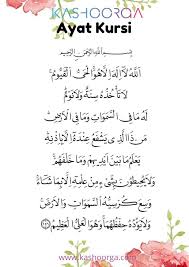 KASHOORQA
Ayat Kursi
بِسْمِ اللَّهِ الرَّحْمَنِ الرَّحِيمِ
اَللّٰهُ لَا إِلٰهَ إِلَّا هُوَ الْحَيُّ الْقَيُّومُ
لَا تَأْخُذُهُ سِنَةٌ وَلَا نَوْمٌ
لَهُ مَا فِي السَّمَاوَاتِ وَمَا فِي الْأَرْضِ
مَنْ ذَا الَّذِي يَشْفَعُ عِنْدَهُ إِلَّا بِإِذْنِهِ
يَعْلَمُ مَا بَيْنَ أَيْدِيهِمْ وَمَا خَلْفَهُمْ
وَلَا يُحِيطُونَ بِشَيْءٍ مِنْ عِلْمِهِ إِلَّا بِمَا شَاءَ
وَسِعَ كُرْسِيُّهُ السَّمَاوَاتِ وَالْأَرْضَ
وَلَا يَئُودُهُ حِفْظُهُمَا وَهُوَ الْعَلِيُّ الْعَظِيمُ
www.kashoorqa.com